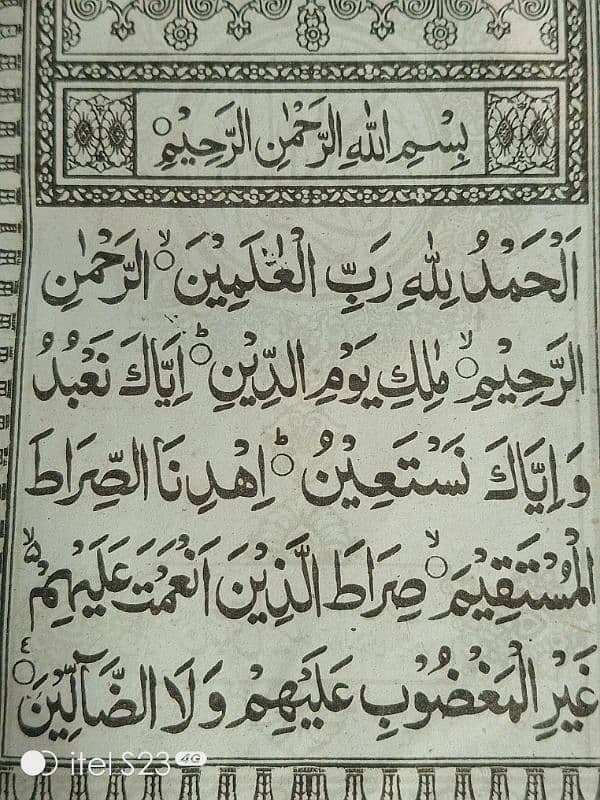 بِسْمِ اللهِ الرَّحْمٰنِ الرَّحِيْمِ ○
اَلْحَمْدُ لِلّٰهِ رَبِّ الْعٰلَمِيْنَ ○ۙ الرَّحْمٰنِ
الرَّحِيْمِ ○ۙ مٰلِكِ يَوْمِ الدِّيْنِ ○ؕ اِيَّاكَ نَعْبُدُ
وَاِيَّاكَ نَسْتَعِيْنُ ○ؕ اِهْدِنَا الصِّرَاطَ
الْمُسْتَقِيْمَ ○ۙ صِرَاطَ الَّذِيْنَ اَنْعَمْتَ عَلَيْهِمْ ۙ۵
غَيْرِ الْمَغْضُوْبِ عَلَيْهِمْ وَلَا الضَّآلِّيْنَ ○ ٤
itel S23 4G